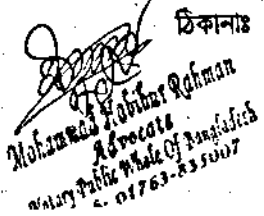 ঠিকানাঃ
Mohammad Habibur Rahman
Advocate
Notary Public Whole Of Bangladesh
01763-835007